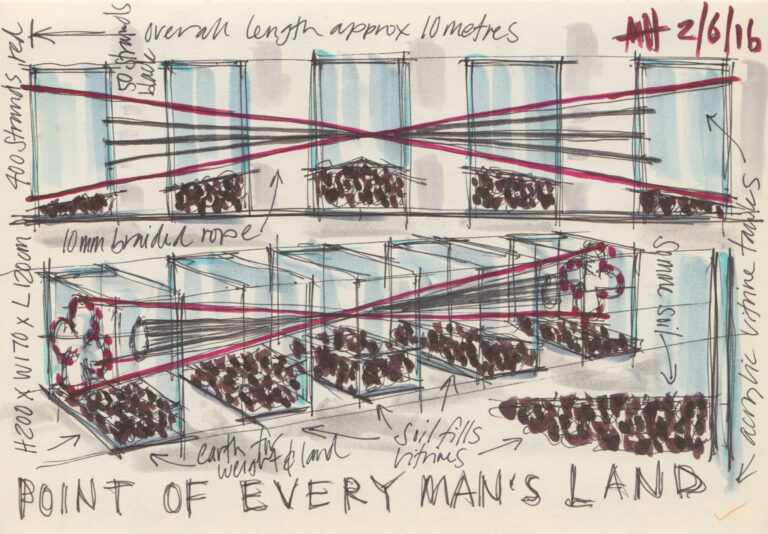 overall length approx 10 metres
2/6/16
400 strands, red
50 strands
black
10mm braided rope
H200 x W170 x L120cm
acrylic vitrine tanks
earth for
weight of land
soil fills
vitrines
POINT OF EVERY MAN'S LAND